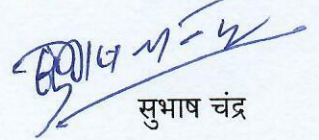 सुभाष चंद्र